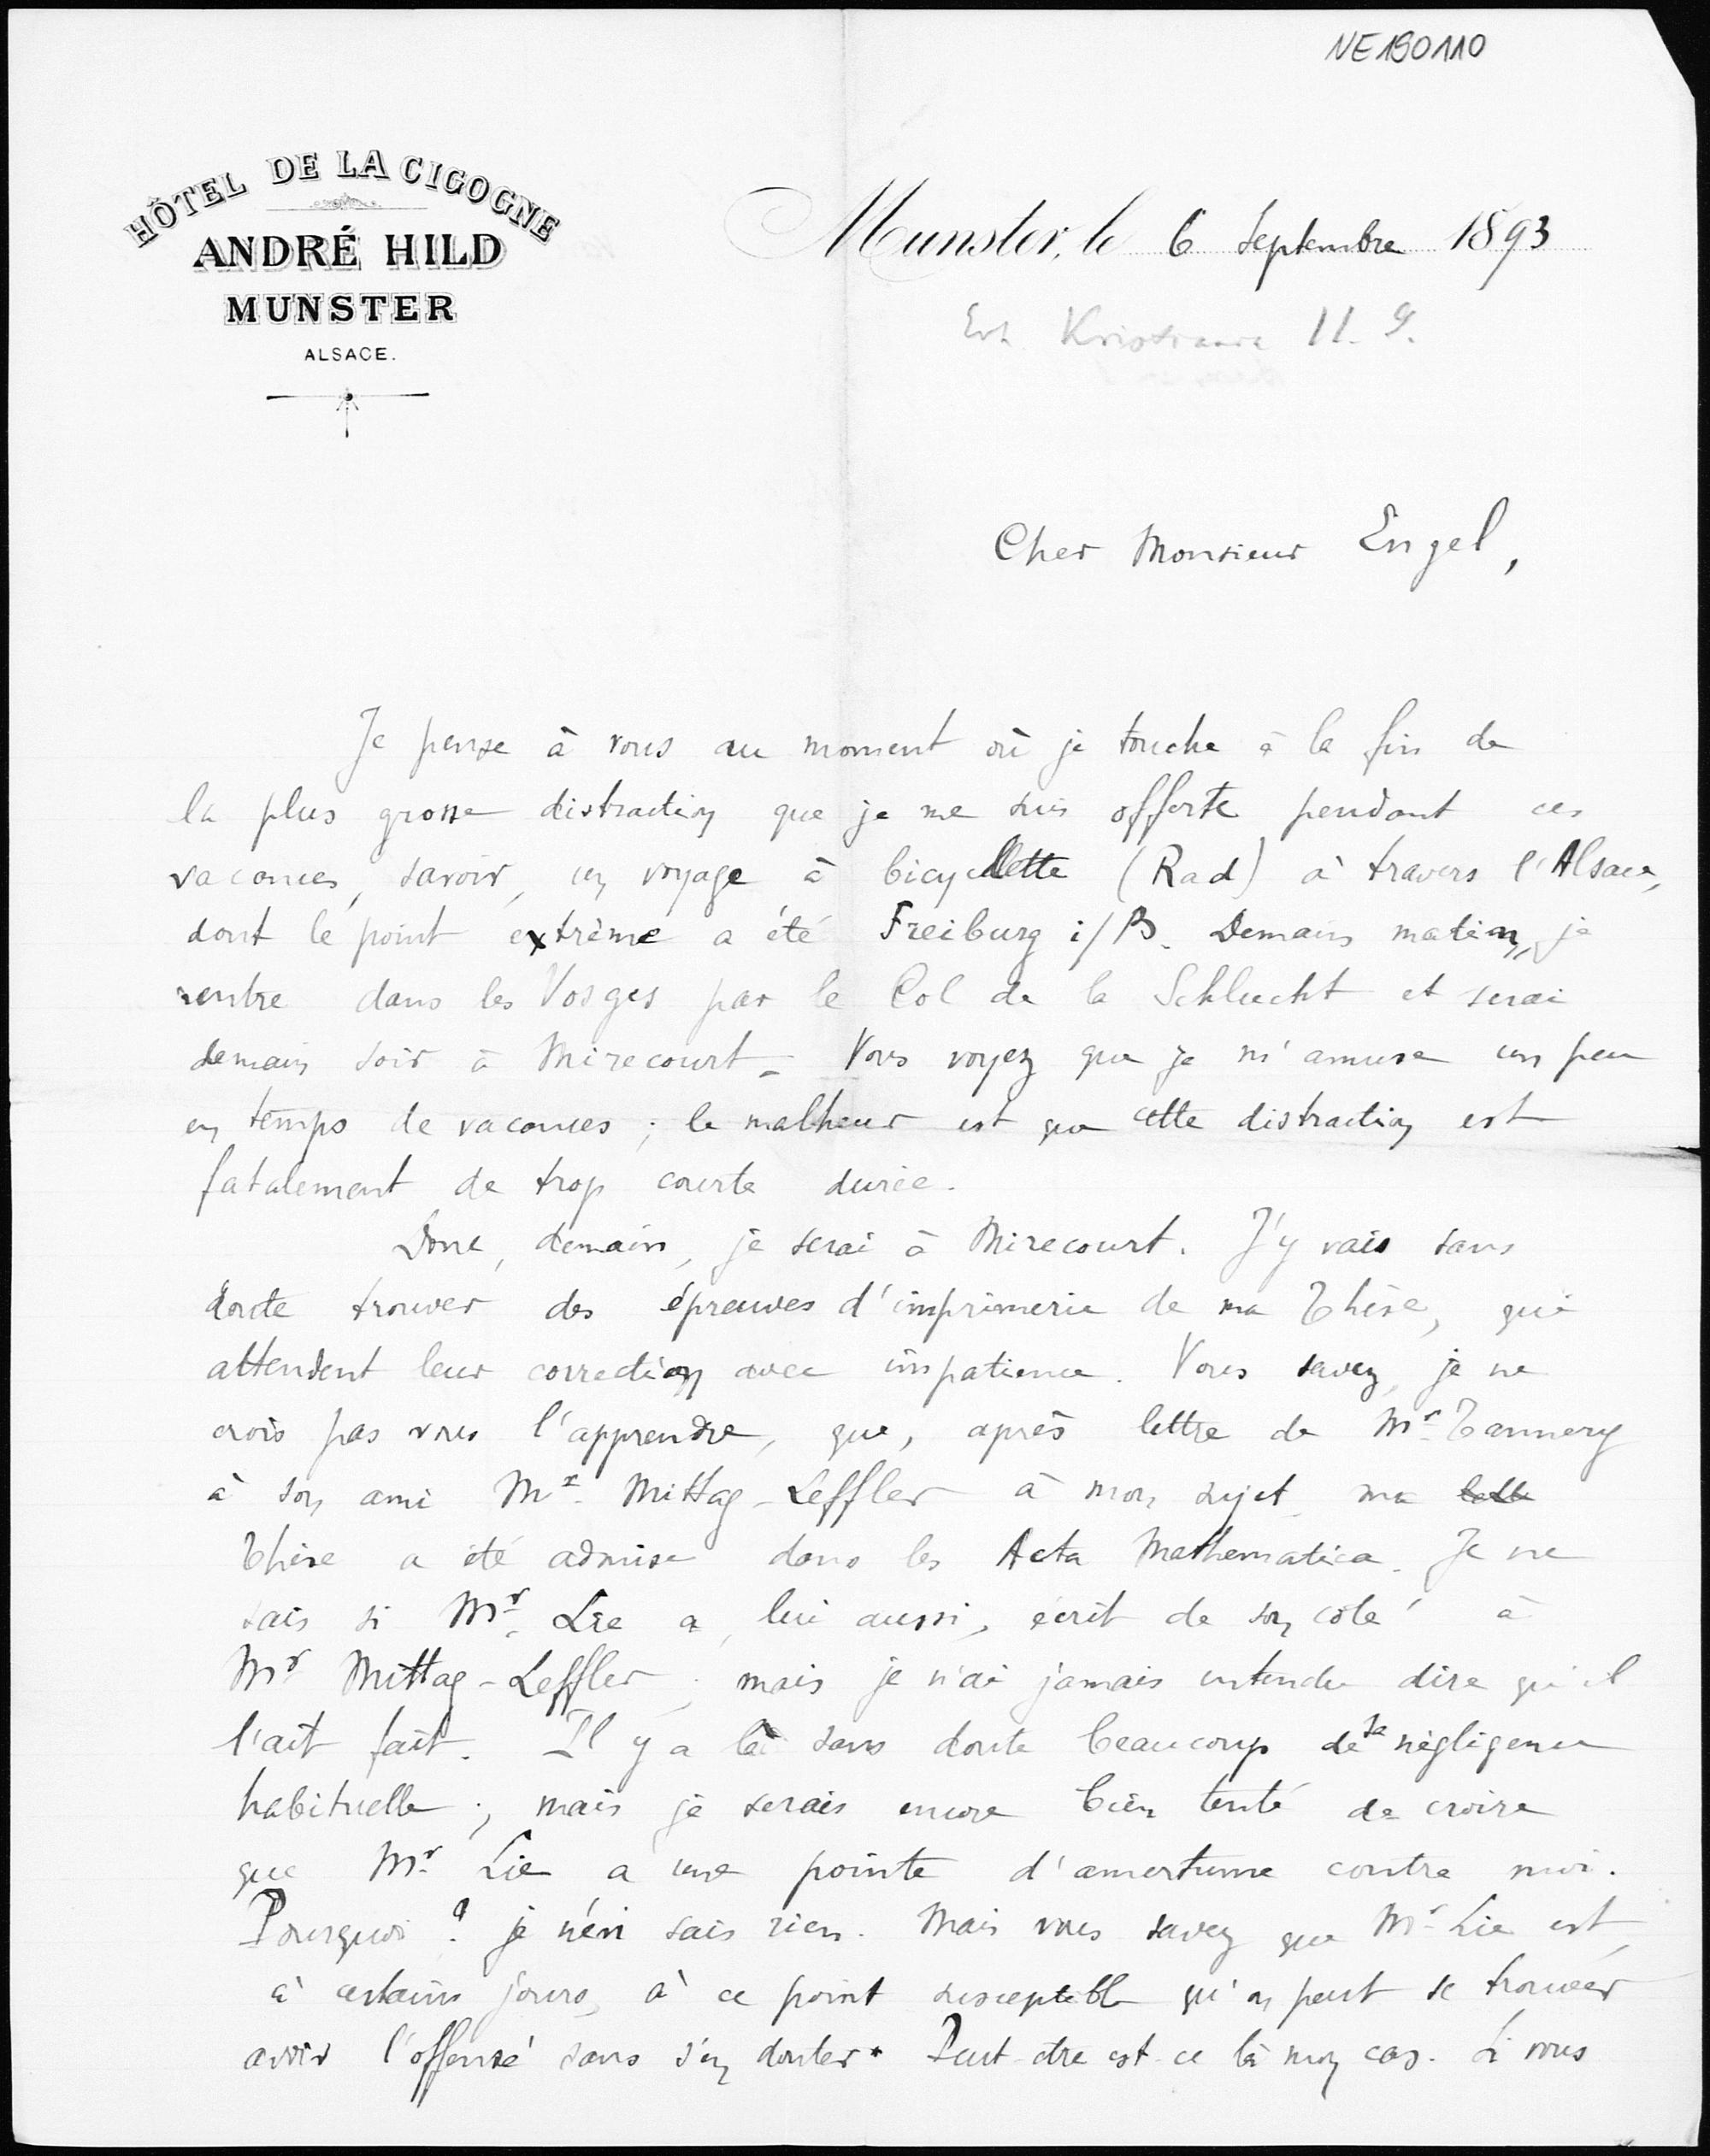 NE190110
HÔTEL DE LA CIGOGNE
ANDRÉ HILD
MUNSTER
ALSACE.
Munster, le 6 Septembre 1893
Erh. Kristiania 11. 9.
Cher Monsieur Engel,
Je pense à vous au moment où je touche à la fin de
la plus grosse distraction que je me suis offerte pendant ces
vacances, savoir, un voyage à bicyclette (Rad) à travers l'Alsace,
dont le point extrême a été Freiburg i/B. Demain matin, je
rentre dans les Vosges par le Col de la Schlucht et serai
demain soir à Mirecourt. Vous voyez que je m'amuse un peu
en temps de vacances ; le malheur est que cette distraction est
fatalement de trop courte durée.
Donc, demain, je serai à Mirecourt. J'y vais sans
doute trouver des épreuves d'imprimerie de ma Thèse, qui
attendent leur correction avec impatience. Vous savez, je ne
crois pas vous l'apprendre, que, après lettre de Mr Tannery
à son ami Mr Mittag-Leffler à mon sujet, ma
Thèse a été admise dans les Acta Mathematica. Je ne
sais si Mr Lie a, lui aussi, écrit de son côté à
Mr Mittag-Leffler ; mais je n'ai jamais entendu dire qu'il
l'ait fait. Il y a là sans doute beaucoup de sa négligence
habituelle ; mais je serais encore bien tenté de croire
que Mr Lie a une pointe d'amertume contre moi.
Pourquoi ? je n'en sais rien. Mais vous savez que Mr Lie est,
à certains jours, à ce point susceptible qu'on peut se trouver
avoir l'offensé sans s'en douter. Peut-être est-ce là mon cas. Si vous